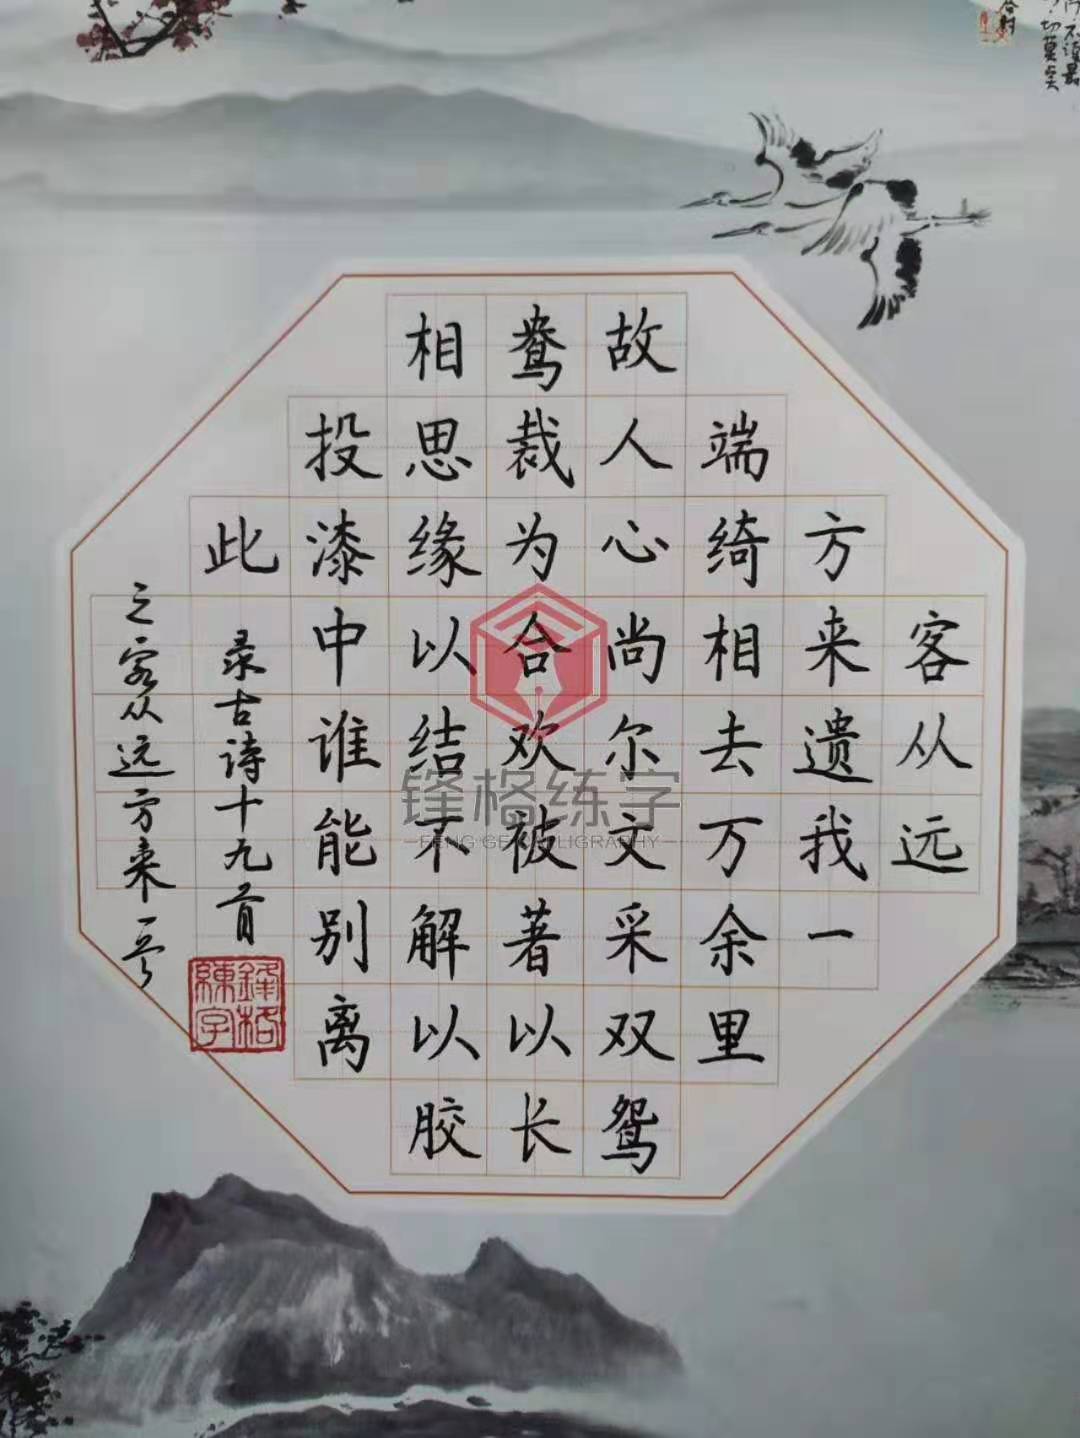 客从远
方来遗我一
端绮相去万余里
故人心尚尔文采双鸳
鸯裁为合欢被著以长
相思缘以结不解以胶
投漆中谁能别离
此
录古诗十九首
之客从远方来一首
鋒格
練字
锋格练字
FENG GE CALLIGRAPHY